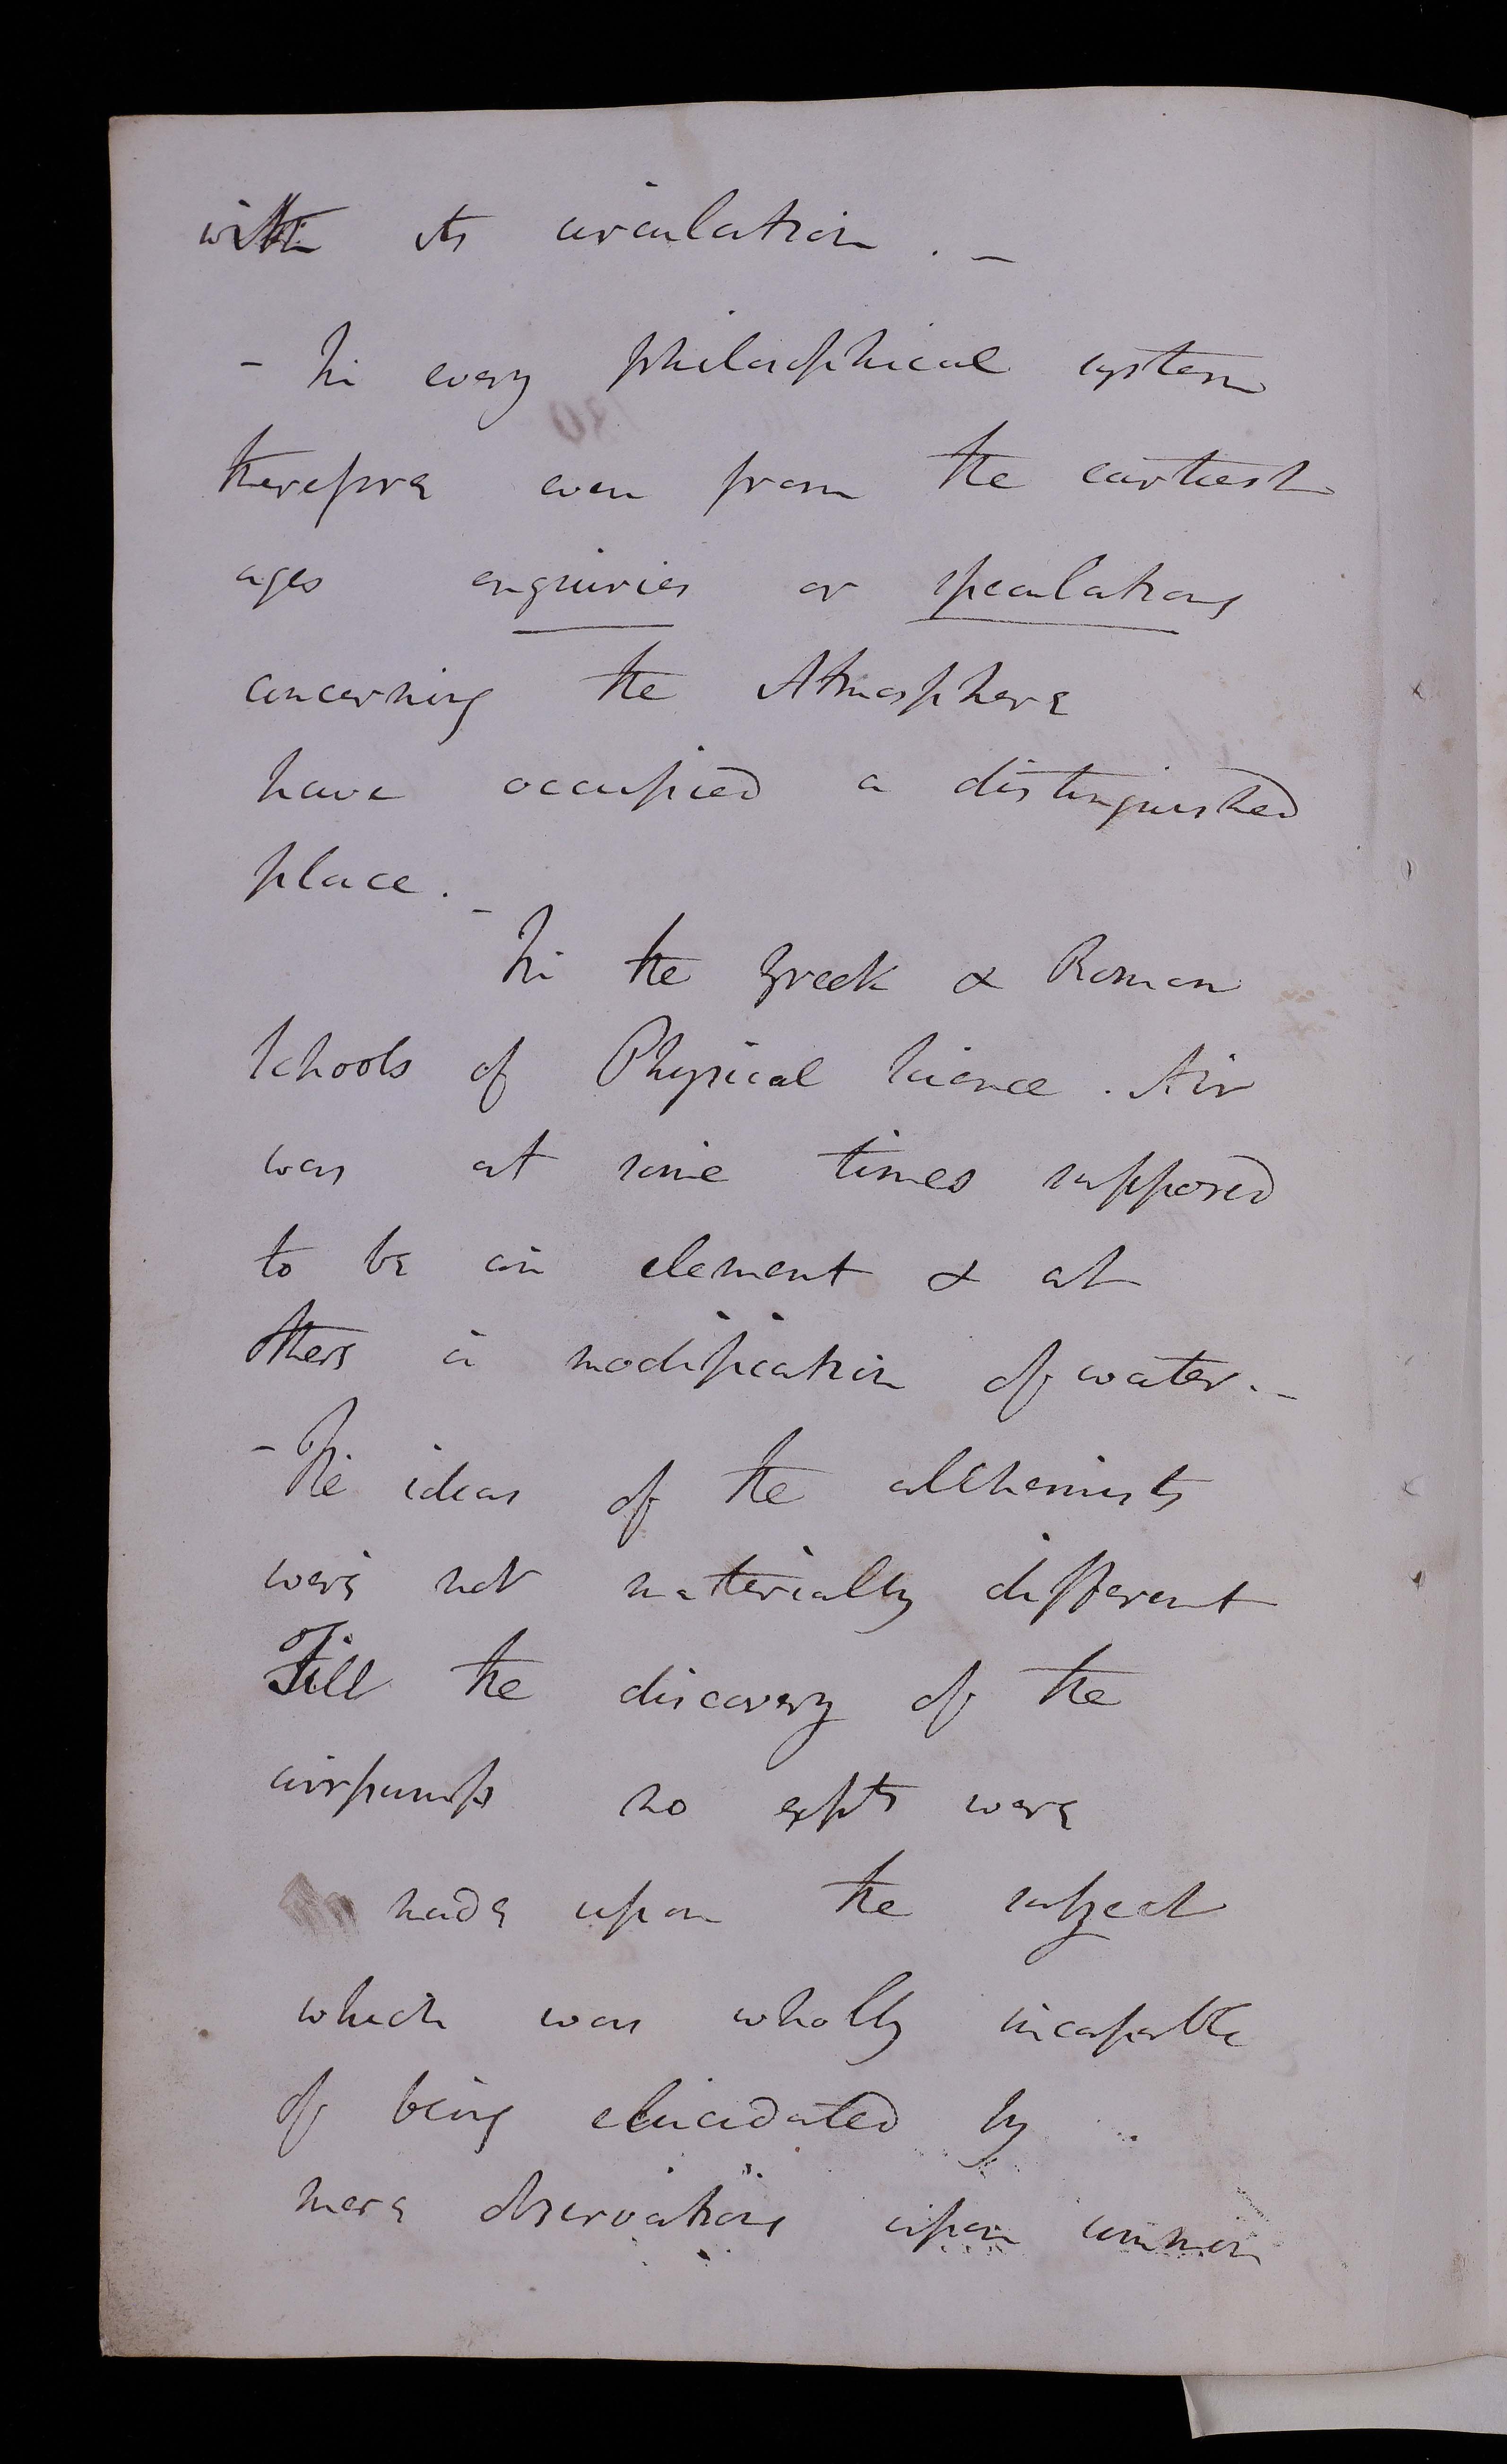 with its circulation. —
- In every philosophical system
therefore even from the earliest
ages enquiries or speculations
concerning the Atmosphere
have occupied a distinguished
place. _
In the Greek & Roman
Schools of Physical Science. Air
was at some times supposed
to be an element & at
others a modification of water. _
- The ideas of the alchemists
were not materially different
Till the discovery of the
airpump no expts were
made upon the subject
which was wholly incapable
of being elucidated by
mere observations upon common